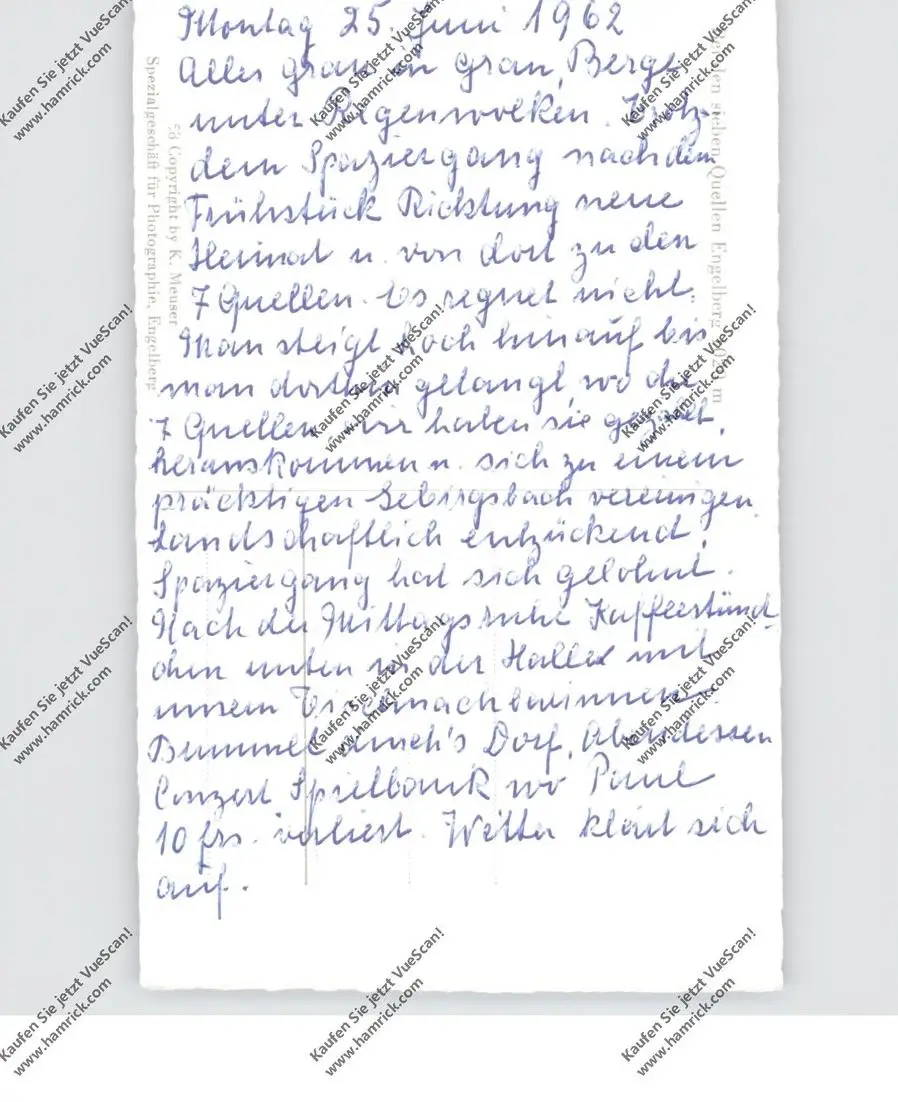 Montag 25. Juni 1962
Alles grau in grau, Berge
unter Regenwolken. Trotz-
dem Spaziergang nach dem
Frühstück Richtung neue
Heimat u. von dort zu den
7 Quellen. Es regnet nicht.
Man steigt hoch hinauf bis
man dorthin gelangt, wo die
7 Quellen, wir haben sie gezählt,
herauskommen u. sich zu einem
prächtigen Gebirgsbach vereinigen.
Landschaftlich entzückend,
Spaziergang hat sich gelohnt.
Nach der Mittagsruhe Kaffeestünd-
chen unten in der Halle mit
unsern Tischnachbarinnen.
Bummel durch's Dorf, Abendessen
Conzert Spielbank wo Paul
10 frs. verliert. Wetter klärt sich
auf.
Spezialgeschäft für Photographie, Engelberg
58 Copyright by K. Meuser
sieben Quellen Engelberg m
Kaufen Sie jetzt VueScan!
www.hamrick.com
Kaufen Sie jetzt VueScan!
www.hamrick.com
Kaufen Sie jetzt VueScan!
www.hamrick.com
Kaufen Sie jetzt VueScan!
www.hamrick.com
Kaufen Sie jetzt VueScan!
www.hamrick.com
Kaufen Sie jetzt VueScan!
www.hamrick.com
Kaufen Sie jetzt VueScan!
www.hamrick.com
Kaufen Sie jetzt VueScan!
www.hamrick.com
Kaufen Sie jetzt VueScan!
www.hamrick.com
Kaufen Sie jetzt VueScan!
www.hamrick.com
Kaufen Sie jetzt VueScan!
www.hamrick.com
Kaufen Sie jetzt VueScan!
www.hamrick.com